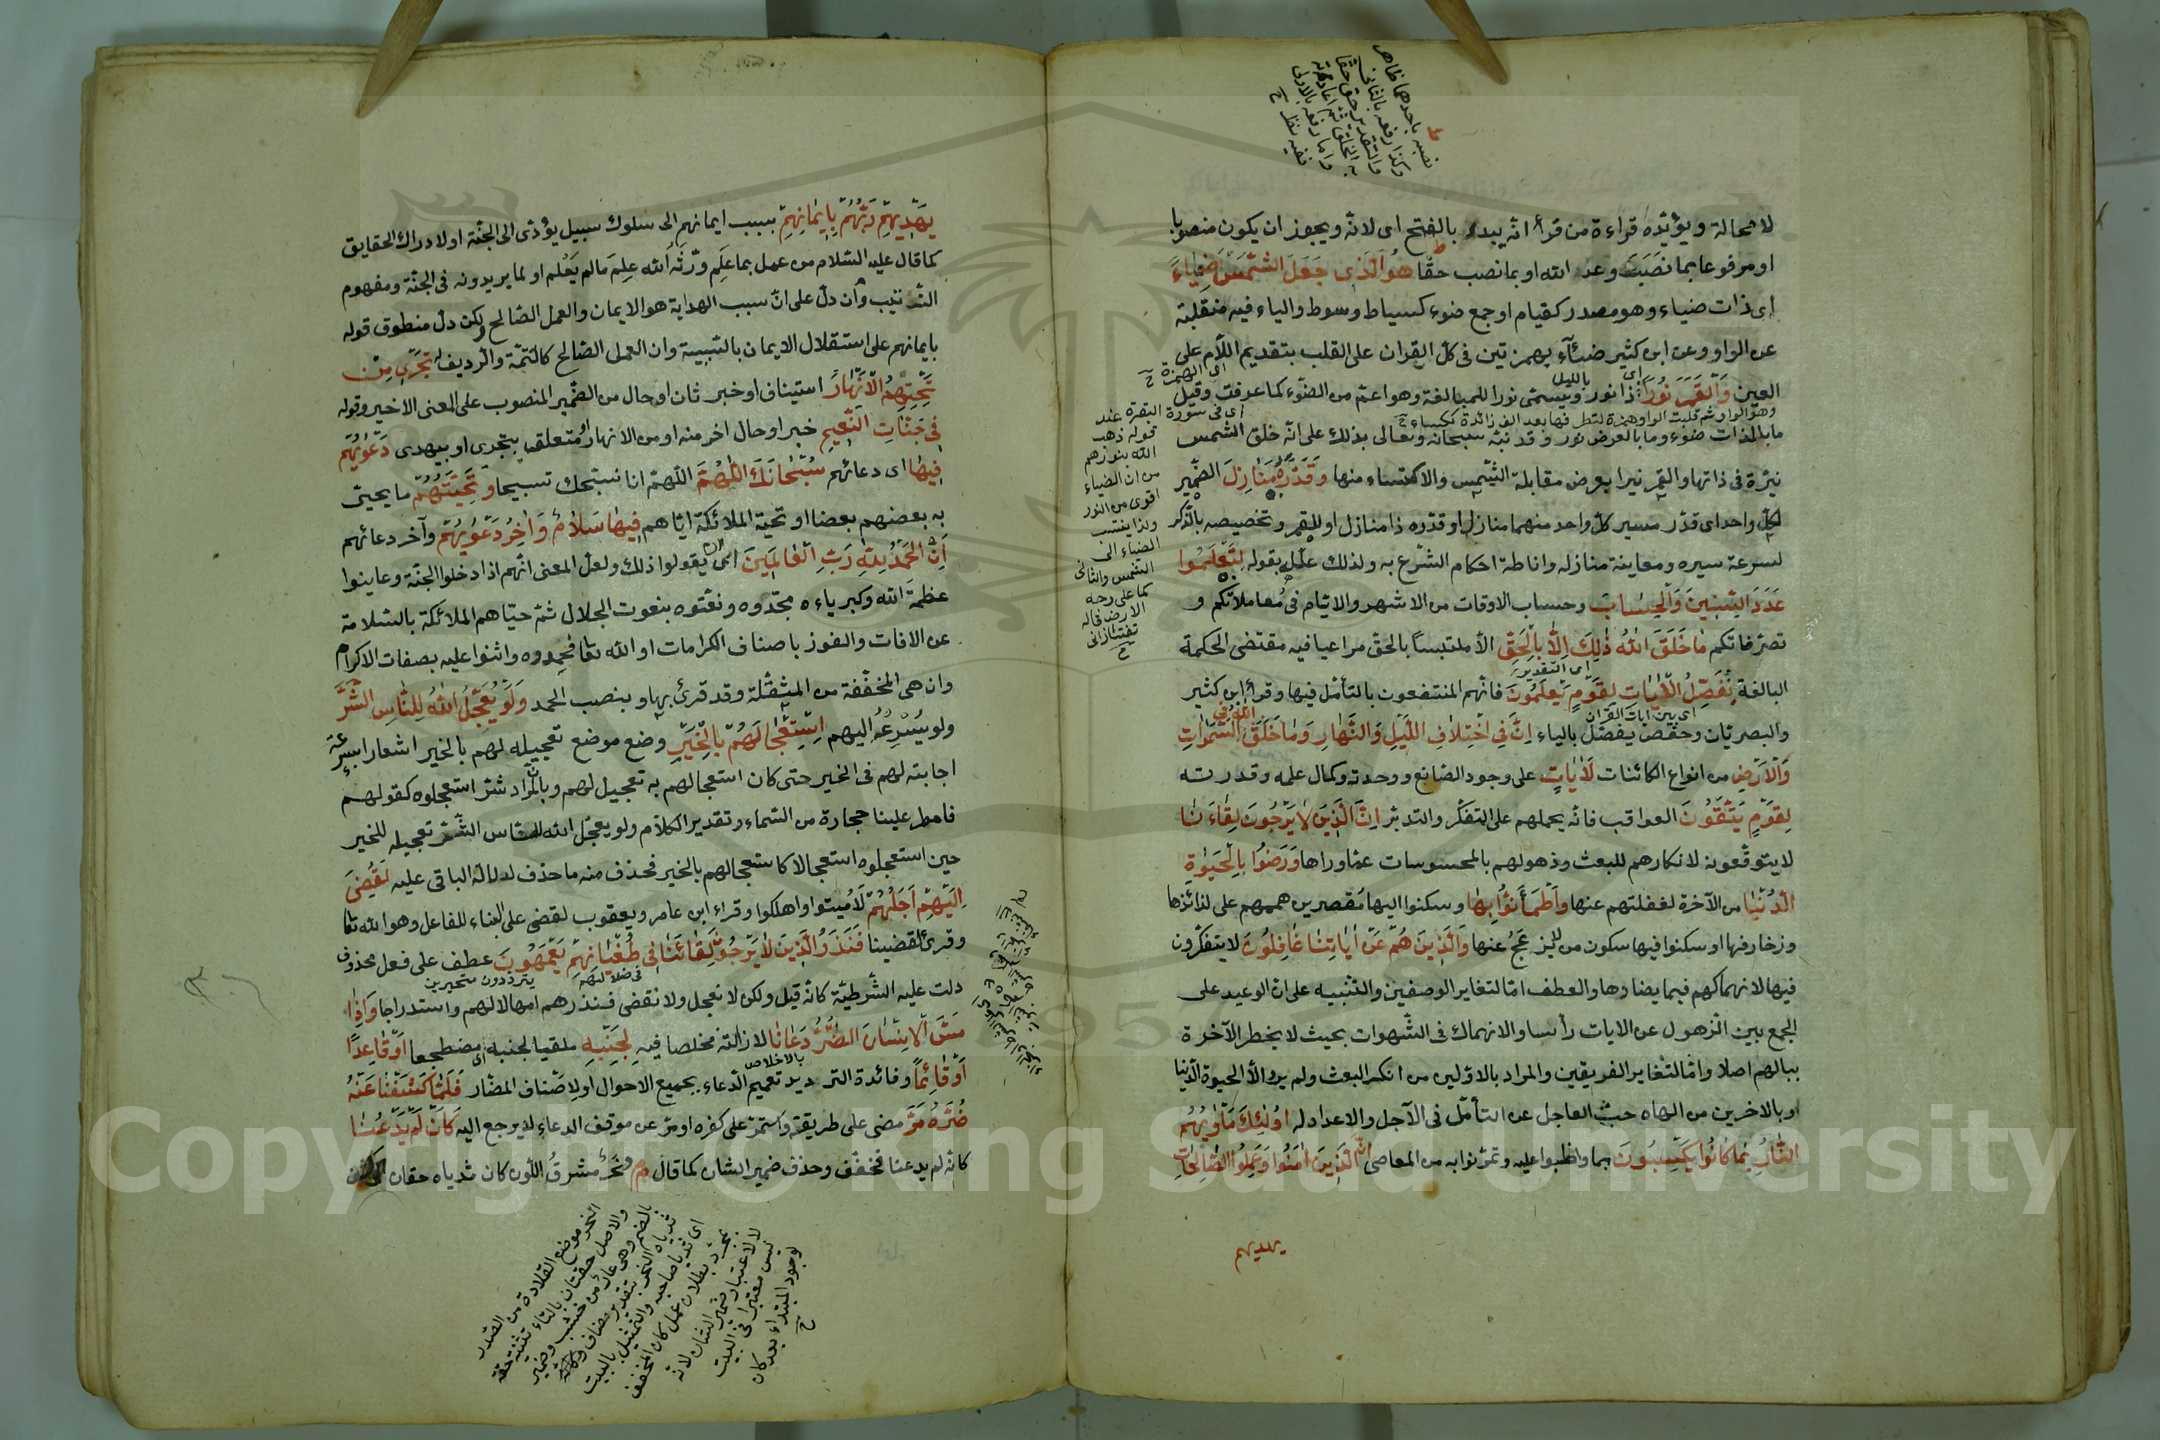 لا محالة ويؤيده قراءة من قرأ انه يبدء بالفتح اى لانه ويجوز ان يكون منصوبا
او مرفوعا بما نصَبَ وعد الله او بما نصب حقّا هُوَ الَّذِى جَعَلَ الشَّمْسَ ضِيَاءً
اى ذات ضياء وهو مصدر كقيام او جمع ضوء كسياط وسوط والياء فيه منقلبة
عن الواو وعن ابن كثير ضئآء بهمزتين فى كل القران على القلب بتقديم اللام على
العين وَالْقَمَرَ نُورًا ذا نور ويسمى نورا للمبالغة وهو اعم من الضوء كما عرفت وقيل
ما بالذات ضوء وما بالعرض نور وقد نبه سبحانه وتعالى بذلك على انه خلق الشمس
نيّرة فى ذاتها والقمر نيرا بعرض مقابلة الشمس والاكتساء منها وَقَدَّرَهُ مَنَازِلَ الضمير
لكل واحد اى قدّر مسير كل واحد منهما منازل او قدّره ذا منازل او للقمر وتخصيصه بالذكر
لسرعة سيره ومعاينة منازله واناطة احكام الشرع به ولذلك علله بقوله لِتَعْلَمُوا
عَدَدَ السِّنِينَ وَالْحِسَابَ وحساب الاوقات من الاشهر والايام فى معاملاتكم و
تصرفاتكم مَا خَلَقَ اللهُ ذَٰلِكَ اِلَّا بِالْحَقِّ الا ملتبسا بالحق مراعيا فيه مقتضى الحكمة
البالغة نُفَصِّلُ الْاٰيَاتِ لِقَوْمٍ يَعْلَمُونَ فانهم المنتفعون بالتأمل فيها وقرأ ابن كثير
والبصريان وحفص يفصل بالياء اِنَّ فِى اخْتِلَافِ اللَّيْلِ وَالنَّهَارِ وَمَا خَلَقَ اللهُ فِى السَّمٰوَاتِ
وَالْاَرْضِ من انواع الكائنات لَاٰيَاتٍ على وجود الصانع ووحدته وكمال علمه وقدرته
لِقَوْمٍ يَتَّقُونَ العواقب فانه يحملهم على التفكر والتدبر اِنَّ الَّذِينَ لَا يَرْجُونَ لِقَاءَنَا
لا يتوقعونه لانكارهم للبعث وذهولهم بالمحسوسات عما وراها وَرَضُوا بِالْحَيٰوةِ
الدُّنْيَا من الآخرة لغفلتهم عنها وَاطْمَأَنُّوا بِهَا وسكنوا اليها مقصرين هممهم على لذائذها
وزخارفها او سكنوا فيها سكون من لا يزعج عنها وَالَّذِينَ هُمْ عَنْ اٰيَاتِنَا غَافِلُونَ لا يتفكرون
فيها لانهماكهم فيما يضادها والعطف اما لتغاير الوصفين والتنبيه على ان الوعيد على
الجمع بين الذهول عن الايات رأسا والانهماك فى الشهوات بحيث لا يخطر الآخرة
ببالهم اصلا واما لتغاير الفريقين والمراد بالاولين من انكر البعث ولم ير الا الحيوة الدنيا
وبالاخرين من الهاه حب العاجل عن التأمل فى الآجل والاعداد له اُولٰئِكَ مَاْوٰيهُمُ
النَّارُ بِمَا كَانُوا يَكْسِبُونَ بما واظبوا عليه وتمرنوا به من المعاصى اِنَّ الَّذِينَ اٰمَنُوا وَعَمِلُوا الصَّالِحَاتِ
يهديهم
نصبه باحدهما ظاهر
وكذا رفعه بالثانى
والتقدير حق حقا
بدء الخلق ثم اعادته
واما رفعه بالاول
ففيه نظر ح
اى الهمزة ح
اى
بالليل
وهو الواو ثم قلبت الواو همزة لتطرفها بعد الف زائدة ككساء ح
اى فى سورة البقرة عند
قوله ذهب
الله بنورهم
من ان الضياء
اقوى من النور
ولذا ينسب
الضياء الى
الشمس والثانى
كما على وجه
الارض قاله
تفتازانى
ح
اى التقدير
اى يبين ايات القران
يَهْدِيهِمْ رَبُّهُمْ بِاِيمَانِهِمْ بسبب ايمانهم الى سلوك سبيل يؤدى الى الجنة او لادراك الحقايق
كما قال عليه السلام من عمل بما علم ورّثه الله علم ما لم يعلم او لما يريدونه فى الجنة ومفهوم
الترتيب وان دل على ان سبب الهداية هو الايمان والعمل الصالح لكن دل منطوق قوله
بايمانهم على استقلال الايمان بالسببية وان العمل الصالح كالتتمة والرديف له تَجْرِى مِنْ
تَحْتِهِمُ الْاَنْهَارُ استيناف او خبر ثان او حال من الضمير المنصوب على المعنى الاخير وقوله
فِى جَنَّاتِ النَّعِيمِ خبر او حال اخر منه او من الانهار او متعلق بتجرى او بيهدى دَعْوٰيهُمْ
فِيهَا اى دعائهم سُبْحَانَكَ اللّٰهُمَّ اللهم انا نسبحك تسبيحا وَتَحِيَّتُهُمْ ما يحيى
به بعضهم بعضا او تحية الملائكة اياهم فِيهَا سَلَامٌ وَاٰخِرُ دَعْوٰيهُمْ وآخر دعائهم
اَنِ الْحَمْدُ لِلّٰهِ رَبِّ الْعَالَمِينَ اى ان يقولوا ذلك ولعل المعنى انهم اذا دخلوا الجنة وعاينوا
عظمة الله وكبرياءه مجّدوه ونعتوه بنعوت الجلال ثم حيّاهم الملائكة بالسلامة
عن الافات والفوز باصناف الكرامات او الله تعا فحمدوه واثنوا عليه بصفات الاكرام
وان هى المخففة من المثقلة وقد قرئ بها وبنصب الحمد وَلَوْ يُعَجِّلُ اللهُ لِلنَّاسِ الشَّرَّ
ولو يسرعه اليهم اسْتِعْجَالَهُمْ بِالْخَيْرِ وضع موضع تعجيله لهم بالخير اشعارا بسرعة
اجابته لهم فى الخير حتى كان استعجالهم به تعجيل لهم وبان المراد شر استعجلوه كقولهم
فامطر علينا حجارة من السماء وتقدير الكلام ولو يعجل الله للناس الشر تعجيله للخير
حين استعجلوه استعجالا كاستعجالهم بالخير فحذف منه ما حذف لدلالة الباقى عليه لَقُضِىَ
اِلَيْهِمْ اَجَلُهُمْ لَاُميتوا واهلكوا وقراء ابن عامر ويعقوب لقضى على البناء للفاعل وهو الله تعا
وقرئ لقضينا فَنَذَرُ الَّذِينَ لَا يَرْجُونَ لِقَاءَنَا فِى طُغْيَانِهِمْ يَعْمَهُونَ عطف على فعل محذوف
دلت عليه الشرطية كانه قيل ولكن لا نعجل ولا نقضى فنذرهم امهالا لهم واستدراجا وَاِذَا
مَسَّ الْاِنْسَانَ الضُّرُّ دَعَانَا لازالته مخلصا فيه لِجَنْبِهِ ملقيا لجنبه اى مضطجعا اَوْ قَاعِدًا
اَوْ قَائِمًا وفائدة الترديد تعميم الدعاء بجميع الاحوال او لاصناف المضار فَلَمَّا كَشَفْنَا عَنْهُ
ضُرَّهُ مَرَّ مضى على طريقته واستمر على كفره او مر عن موقف الدعاء لا يرجع اليه كَاَنْ لَمْ يَدْعُنَا
كانه لم يدعنا فخفف وحذف ضمير الشان كما قال ونحر مشرق اللون كان ثدياه حقان
فى ضلالتهم
يترددون متحيرين
بالاخلاص
النحر موضع القلادة من الصدر
والاصل حقتان بالتاء تثنية حقة
بالضم وهى عاء من خشب وضمير
ثدياه للنحر بتقدير مضاف
اى ثديا صاحبه والتمثيل بالبيت
بمجرد بطلان عمل كان المخفف
لا لاعتبار ضمير الشان لانه
ليس معتبرا فى البيت
لوجود المبتداء بعد كان
ح
Copyright © King Saud University
1957